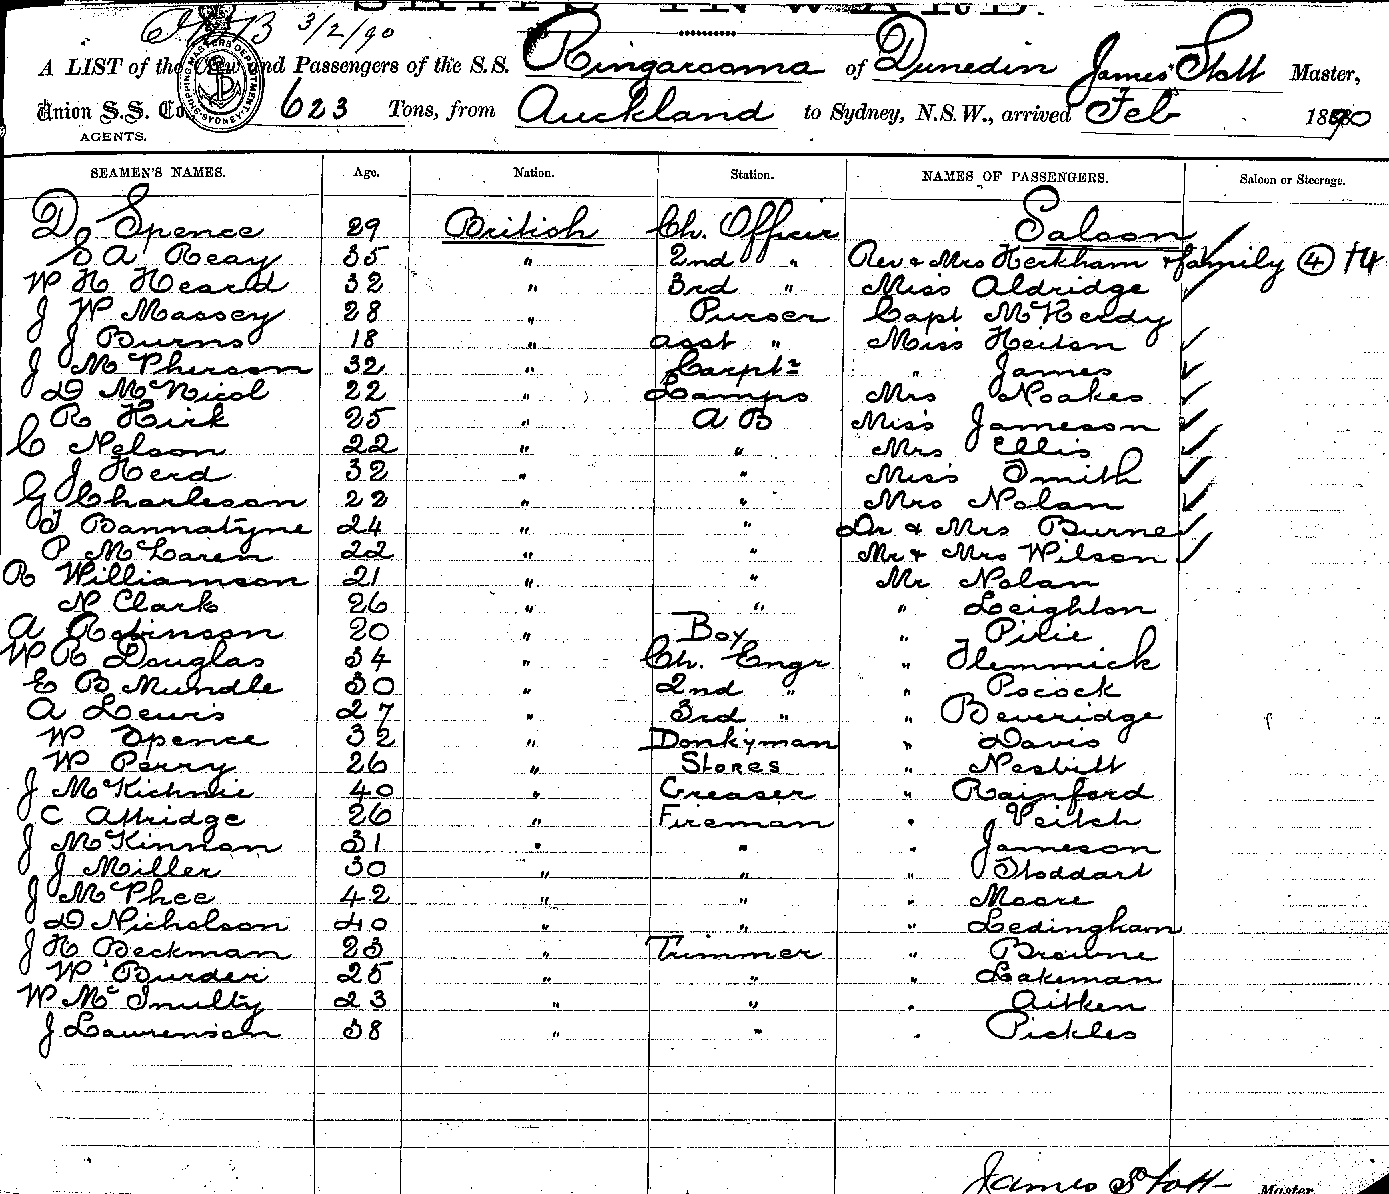 SHIPS INWARD.
3/2/90
A LIST of the Crew and Passengers of the S.S. Ringarooma of Dunedin James Stott Master,
Union S.S. Co 623 Tons, from Auckland to Sydney, N.S.W., arrived Feb 1890
AGENTS.
SHIPPING MASTERS DEPARTMENT SYDNEY
SEAMEN'S NAMES. Age. Nation. Station. NAMES OF PASSENGERS. Saloon or Steerage.
D Spence 29 British Ch. Officer Saloon
S A Reay 35 " 2nd " Rev & Mrs Herkham & family 4
W H Heard 32 " 3rd " Miss Aldridge
J W Massey 28 " Purser Capt
J Burns 18 " asst " Miss Heiton
J McPherson 32 " Carptr " James
D McNicol 22 " Lamps Mrs Noakes
R Hirk 25 " A B Miss Jameson
C Nelson 22 " " Mrs Ellis
J Herd 32 " " Miss Smith
G Charleson 22 " " Mrs Nolan
T Bannatyne 24 " " Dr & Mrs Burne
P McLaren 22 " " Mr & Mrs Wilson
R Williamson 21 " " Mr Nolan
N Clark 26 " " " Leighton
A Robinson 20 " Boy " Pirie
W R Douglas 34 " Ch. Engr " Flemmick
E B Mundle 30 " 2nd " " Pocock
A Lewis 27 " 3rd " " Beveridge
W Spence 32 " Donkyman " Davis
W Perry 26 " Stores " Nesbitt
J McKichnie 40 " Greaser " Rainford
C Attridge 26 " Fireman " Veitch
J McKinnon 31 " " " Jameson
J Miller 30 " " " Stoddart
J McPhee 42 " " " Moore
D Nicholson 40 " " " Ledingham
J H Beckman 23 " Trimmer " Browne
W Burder 25 " " " Lakeman
W McInulty 23 " " " Aitken
J Laurenson 38 " " " Pickles
James Stott Master